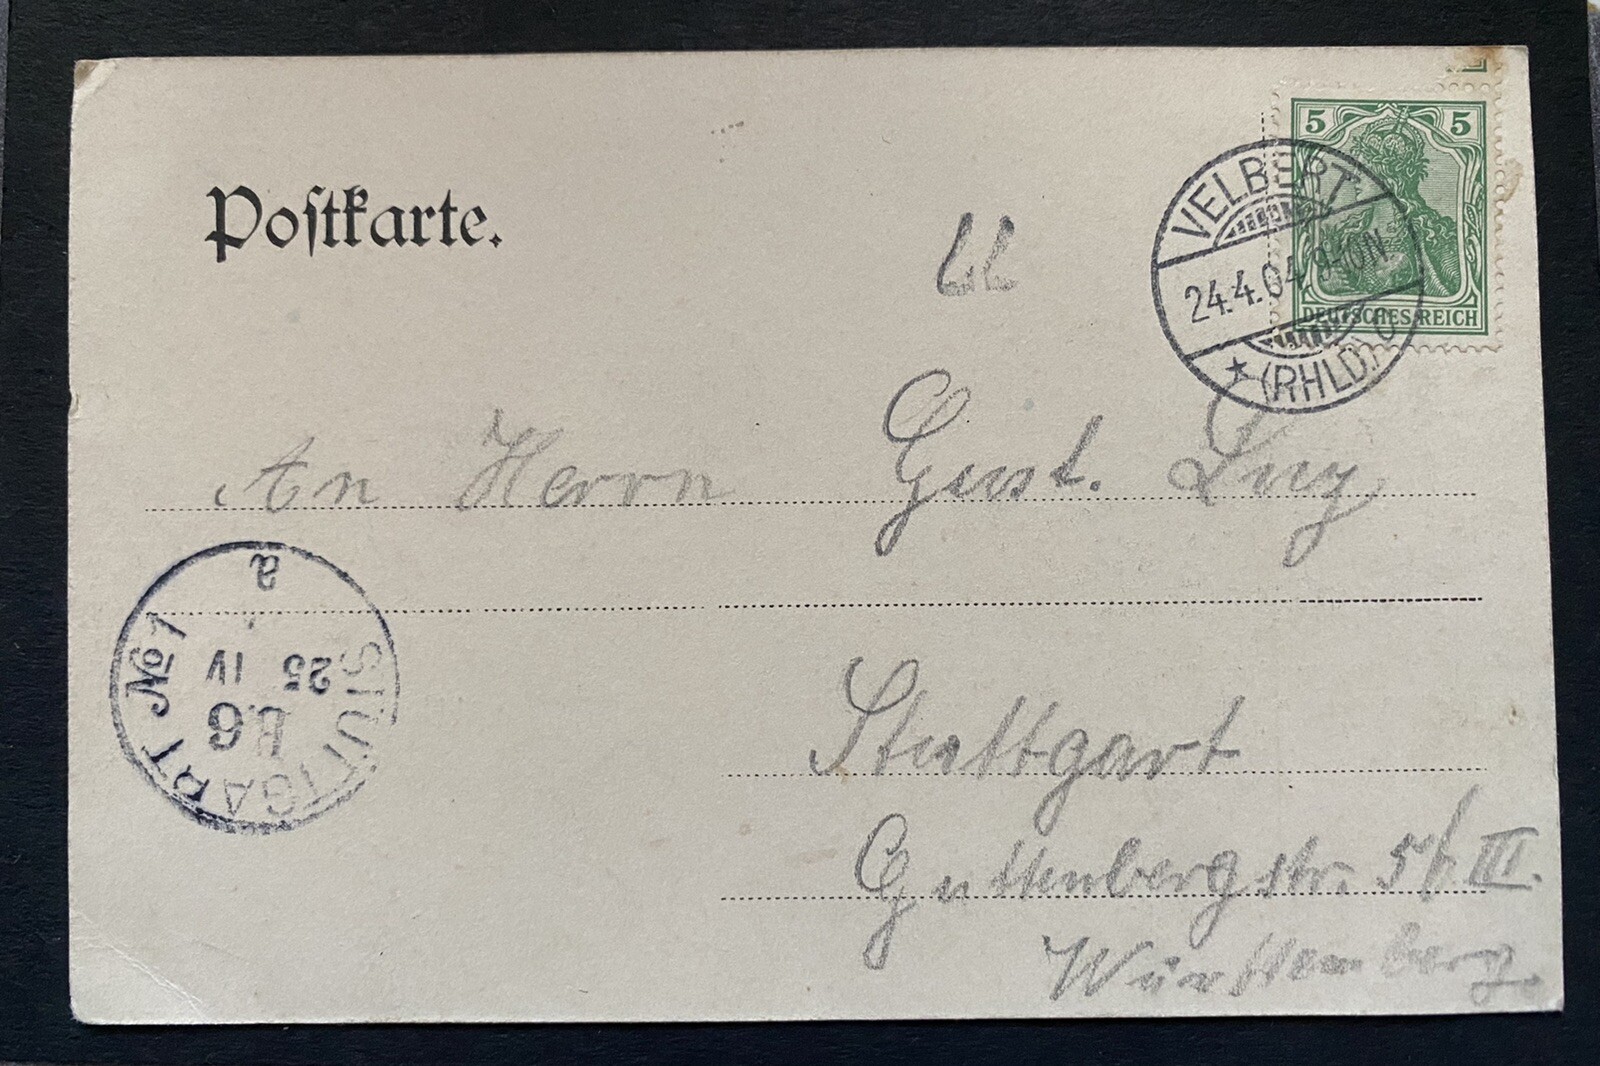 Postkarte.
5 5
DEUTSCHES REICH
VELBERT
24.4.04. 9-10N.
* (RHLD.) c
An Herrn Gust. Luz
STUTTGART No 1
25 IV
6
a
Stuttgart
Guttenbergstr. 56 III.
Württemberg.